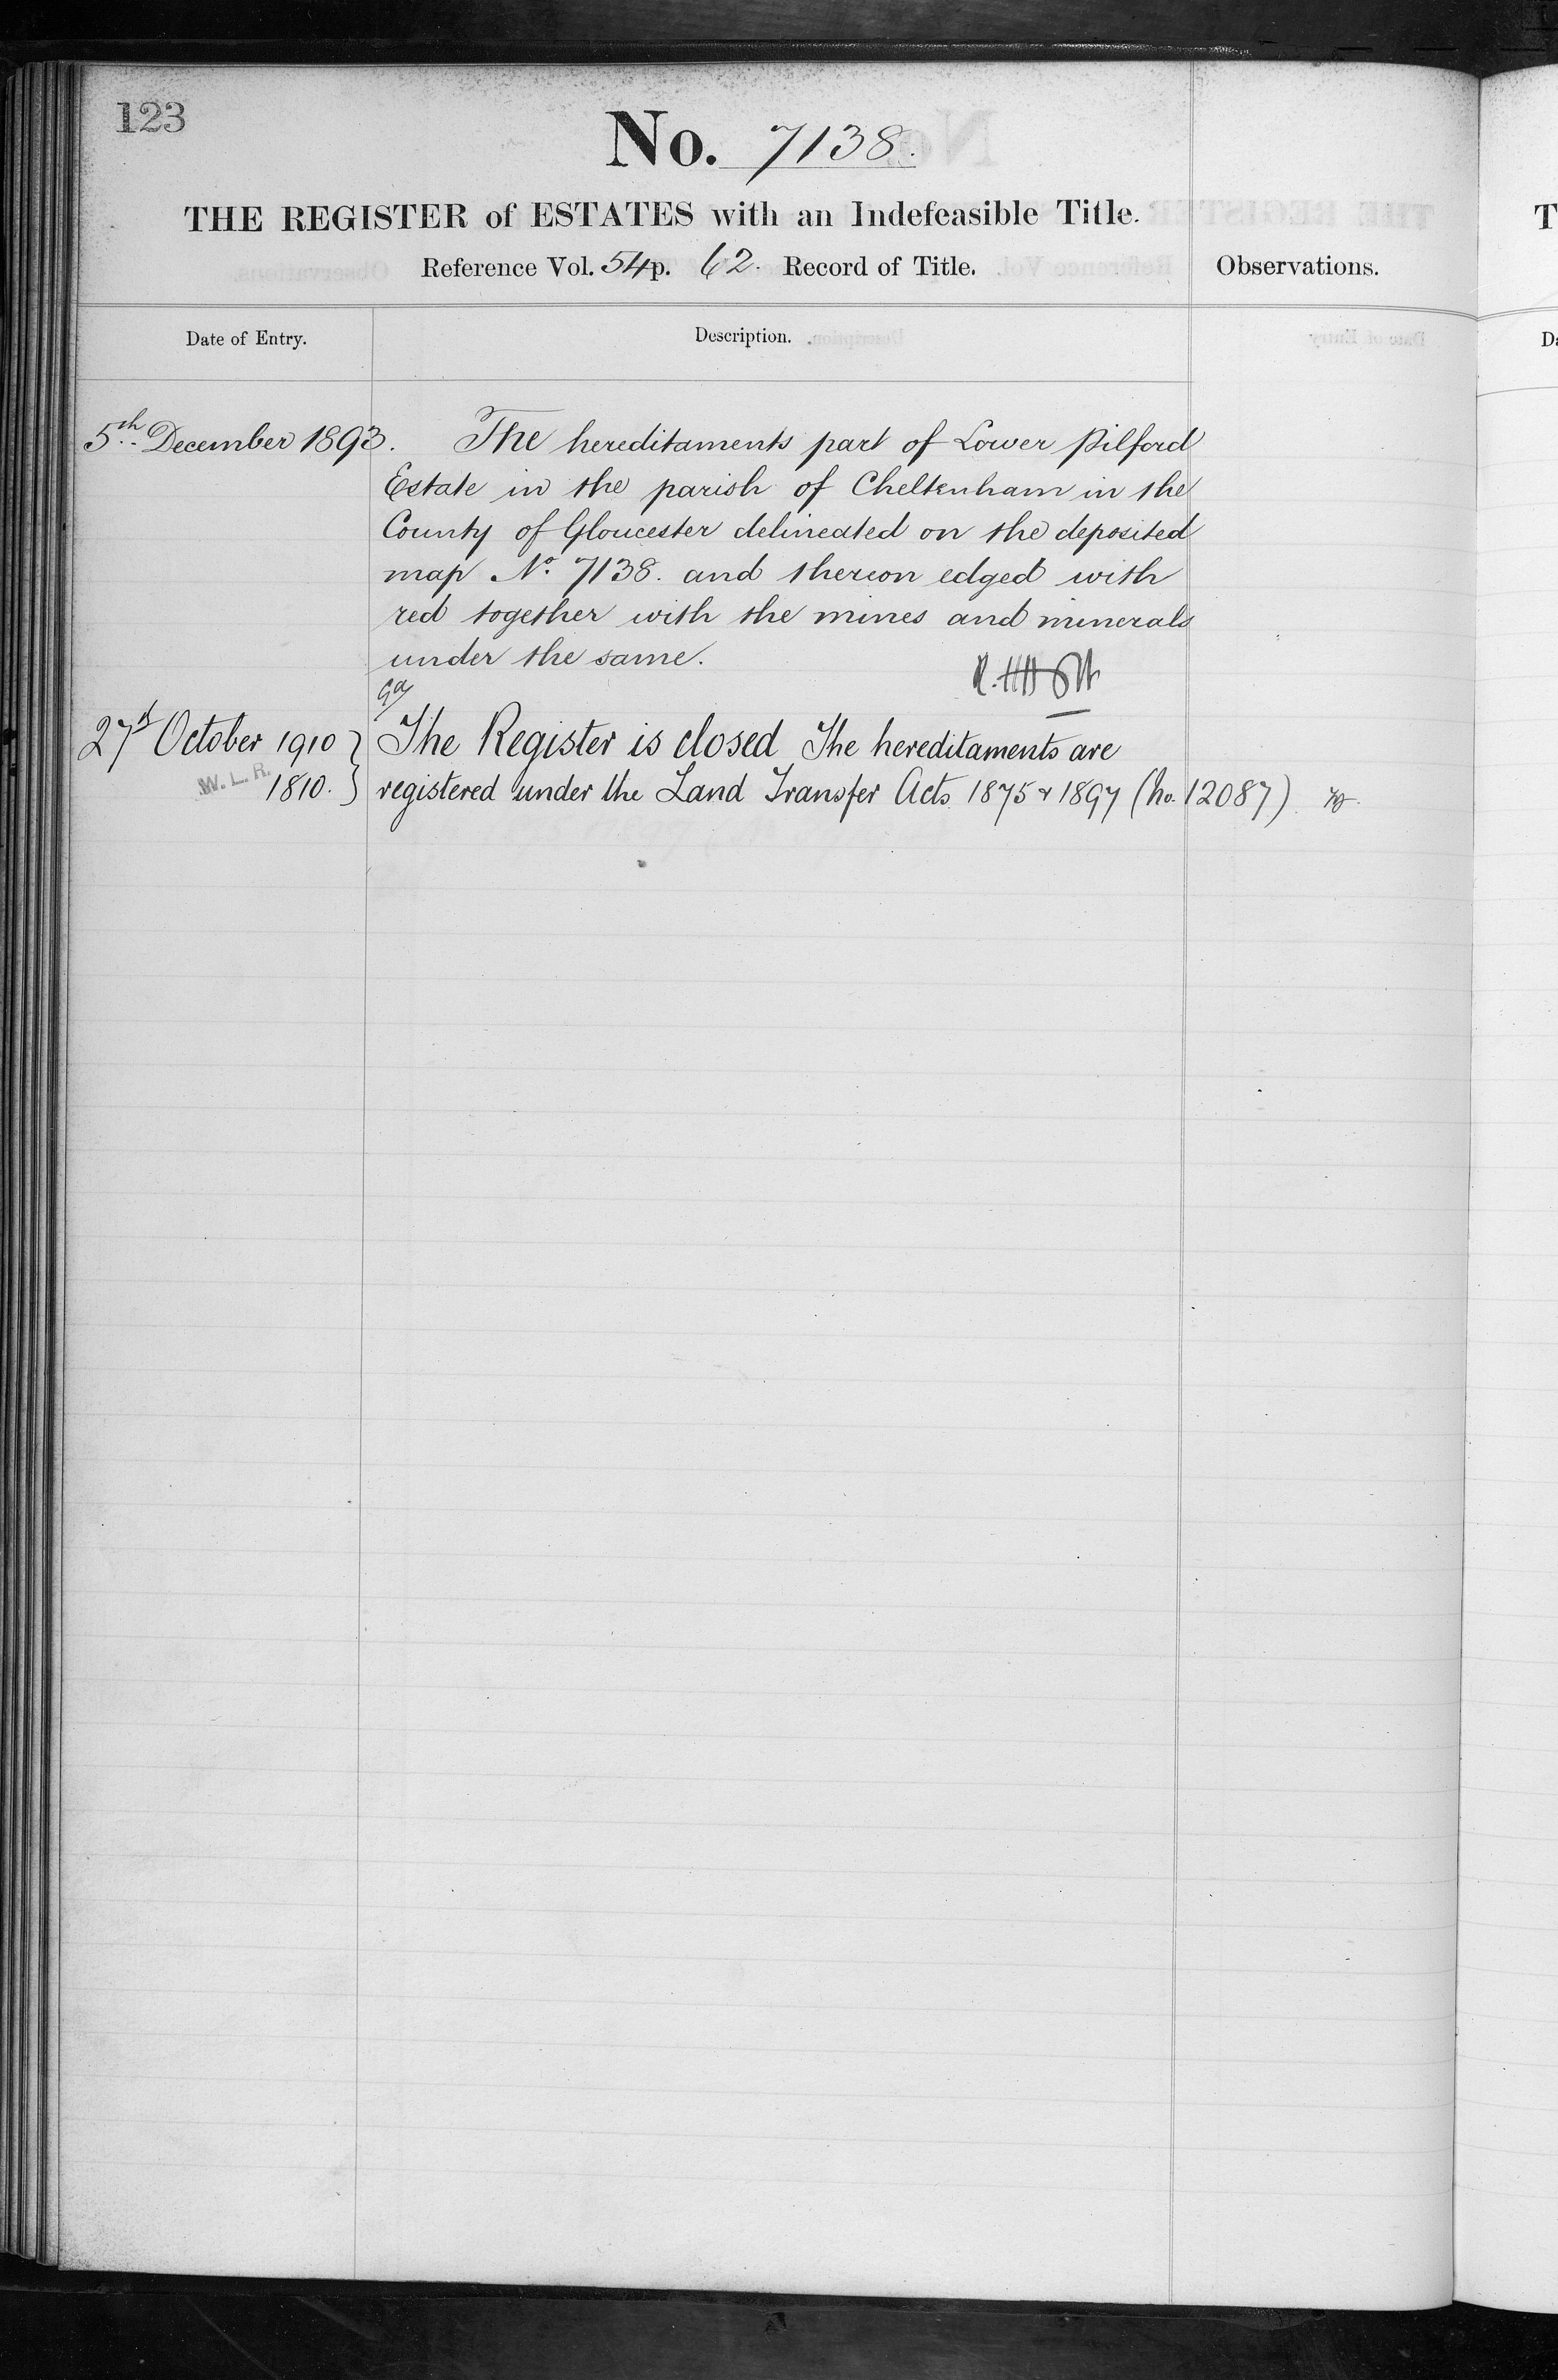 123
No. 7138.
THE REGISTER of ESTATES with an Indefeasible Title.
Reference Vol. 54 p. 62. Record of Title.
Observations.
Date of Entry.
Description.
5th December 1893. The hereditaments part of Lower Pilford
Estate in the parish of Cheltenham in the
County of Gloucester delineated on the deposited
map No. 7138. and thereon edged with
red together with the mines and minerals
under the same.
27th October 1910 } The Register is closed The hereditaments are
W. L. R. 1810. } registered under the Land Transfer Acts 1875 & 1897 (No. 12087)
T
Da